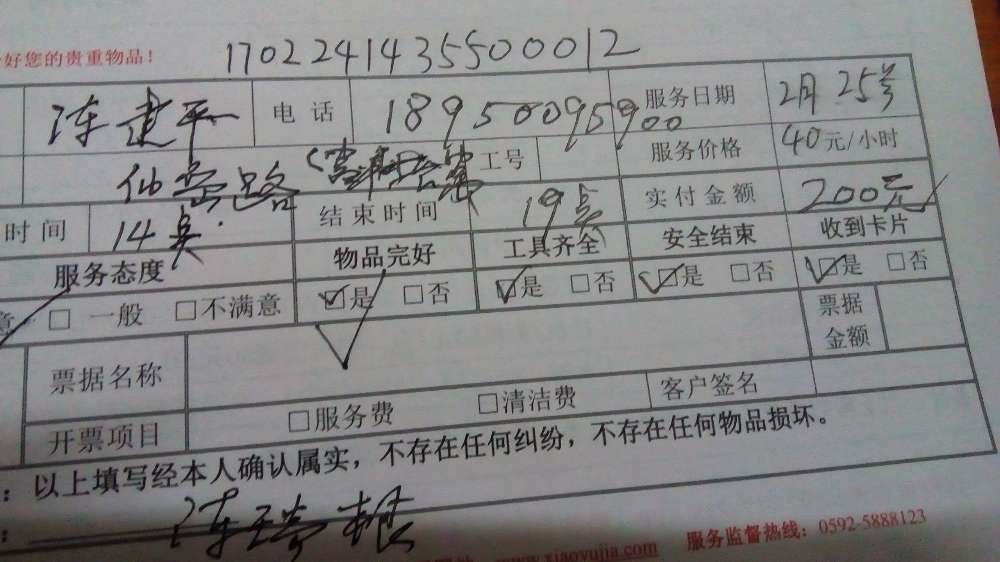 好您的贵重物品！
170224143550 0012
陈建平 电 话 18950095900 服务日期 2月25号
仙岳路 工号 服务价格 40元/小时
时 间 14点 结束时间 19点 实付金额 200元
服务态度 物品完好 工具齐全 安全结束 收到卡片
意 □ 一般 □不满意 ☑是 □否 ☑是 □否 ☑是 □否 ☑是 □否
票据名称 票据金额
开票项目 □服务费 □清洁费 客户签名
：以上填写经本人确认属实，不存在任何纠纷，不存在任何物品损坏。
：陈
www.xiaoyujia.com 服务监督热线：0592-5888123